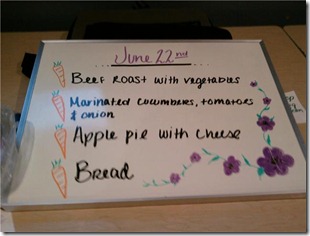 June 22nd
Beef Roast with vegetables
Marinated cucumbers, tomatoes
& onion
Apple pie with cheese
Bread